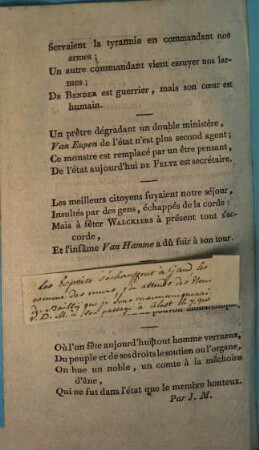 Servaient la tyrannie en commandant nos
armes ;
Un autre commandant vient essuyer nos lar-
mes ;
De BENDER est guerrier, mais son cœur est
humain.
Un prêtre dégradant un double ministère,
Van Eupen de l'état n'est plus second agent ;
Ce monstre est remplacé par un être pensant,
De l'état aujourd'hui DE FELTZ est secrétaire.
Les meilleurs citoyens fuyaient notre séjour,
Insultés par des gens, échappés de la corde :
Mais à fêter WALCKIERS à présent tout s'ac-
corde,
Et l'infâme Van Hamme a dû fuir à son tour.
Les Esprits s'échauffent à Gand les
que je
Où l'on fête aujourd'hui tout homme vertueux,
Du peuple et de ses droits le soutien ou l'organe,
On hue un noble, un comte à la mâchoire
d'âne,
Qui ne fut dans l'état que le membre honteux.
Par J. M.